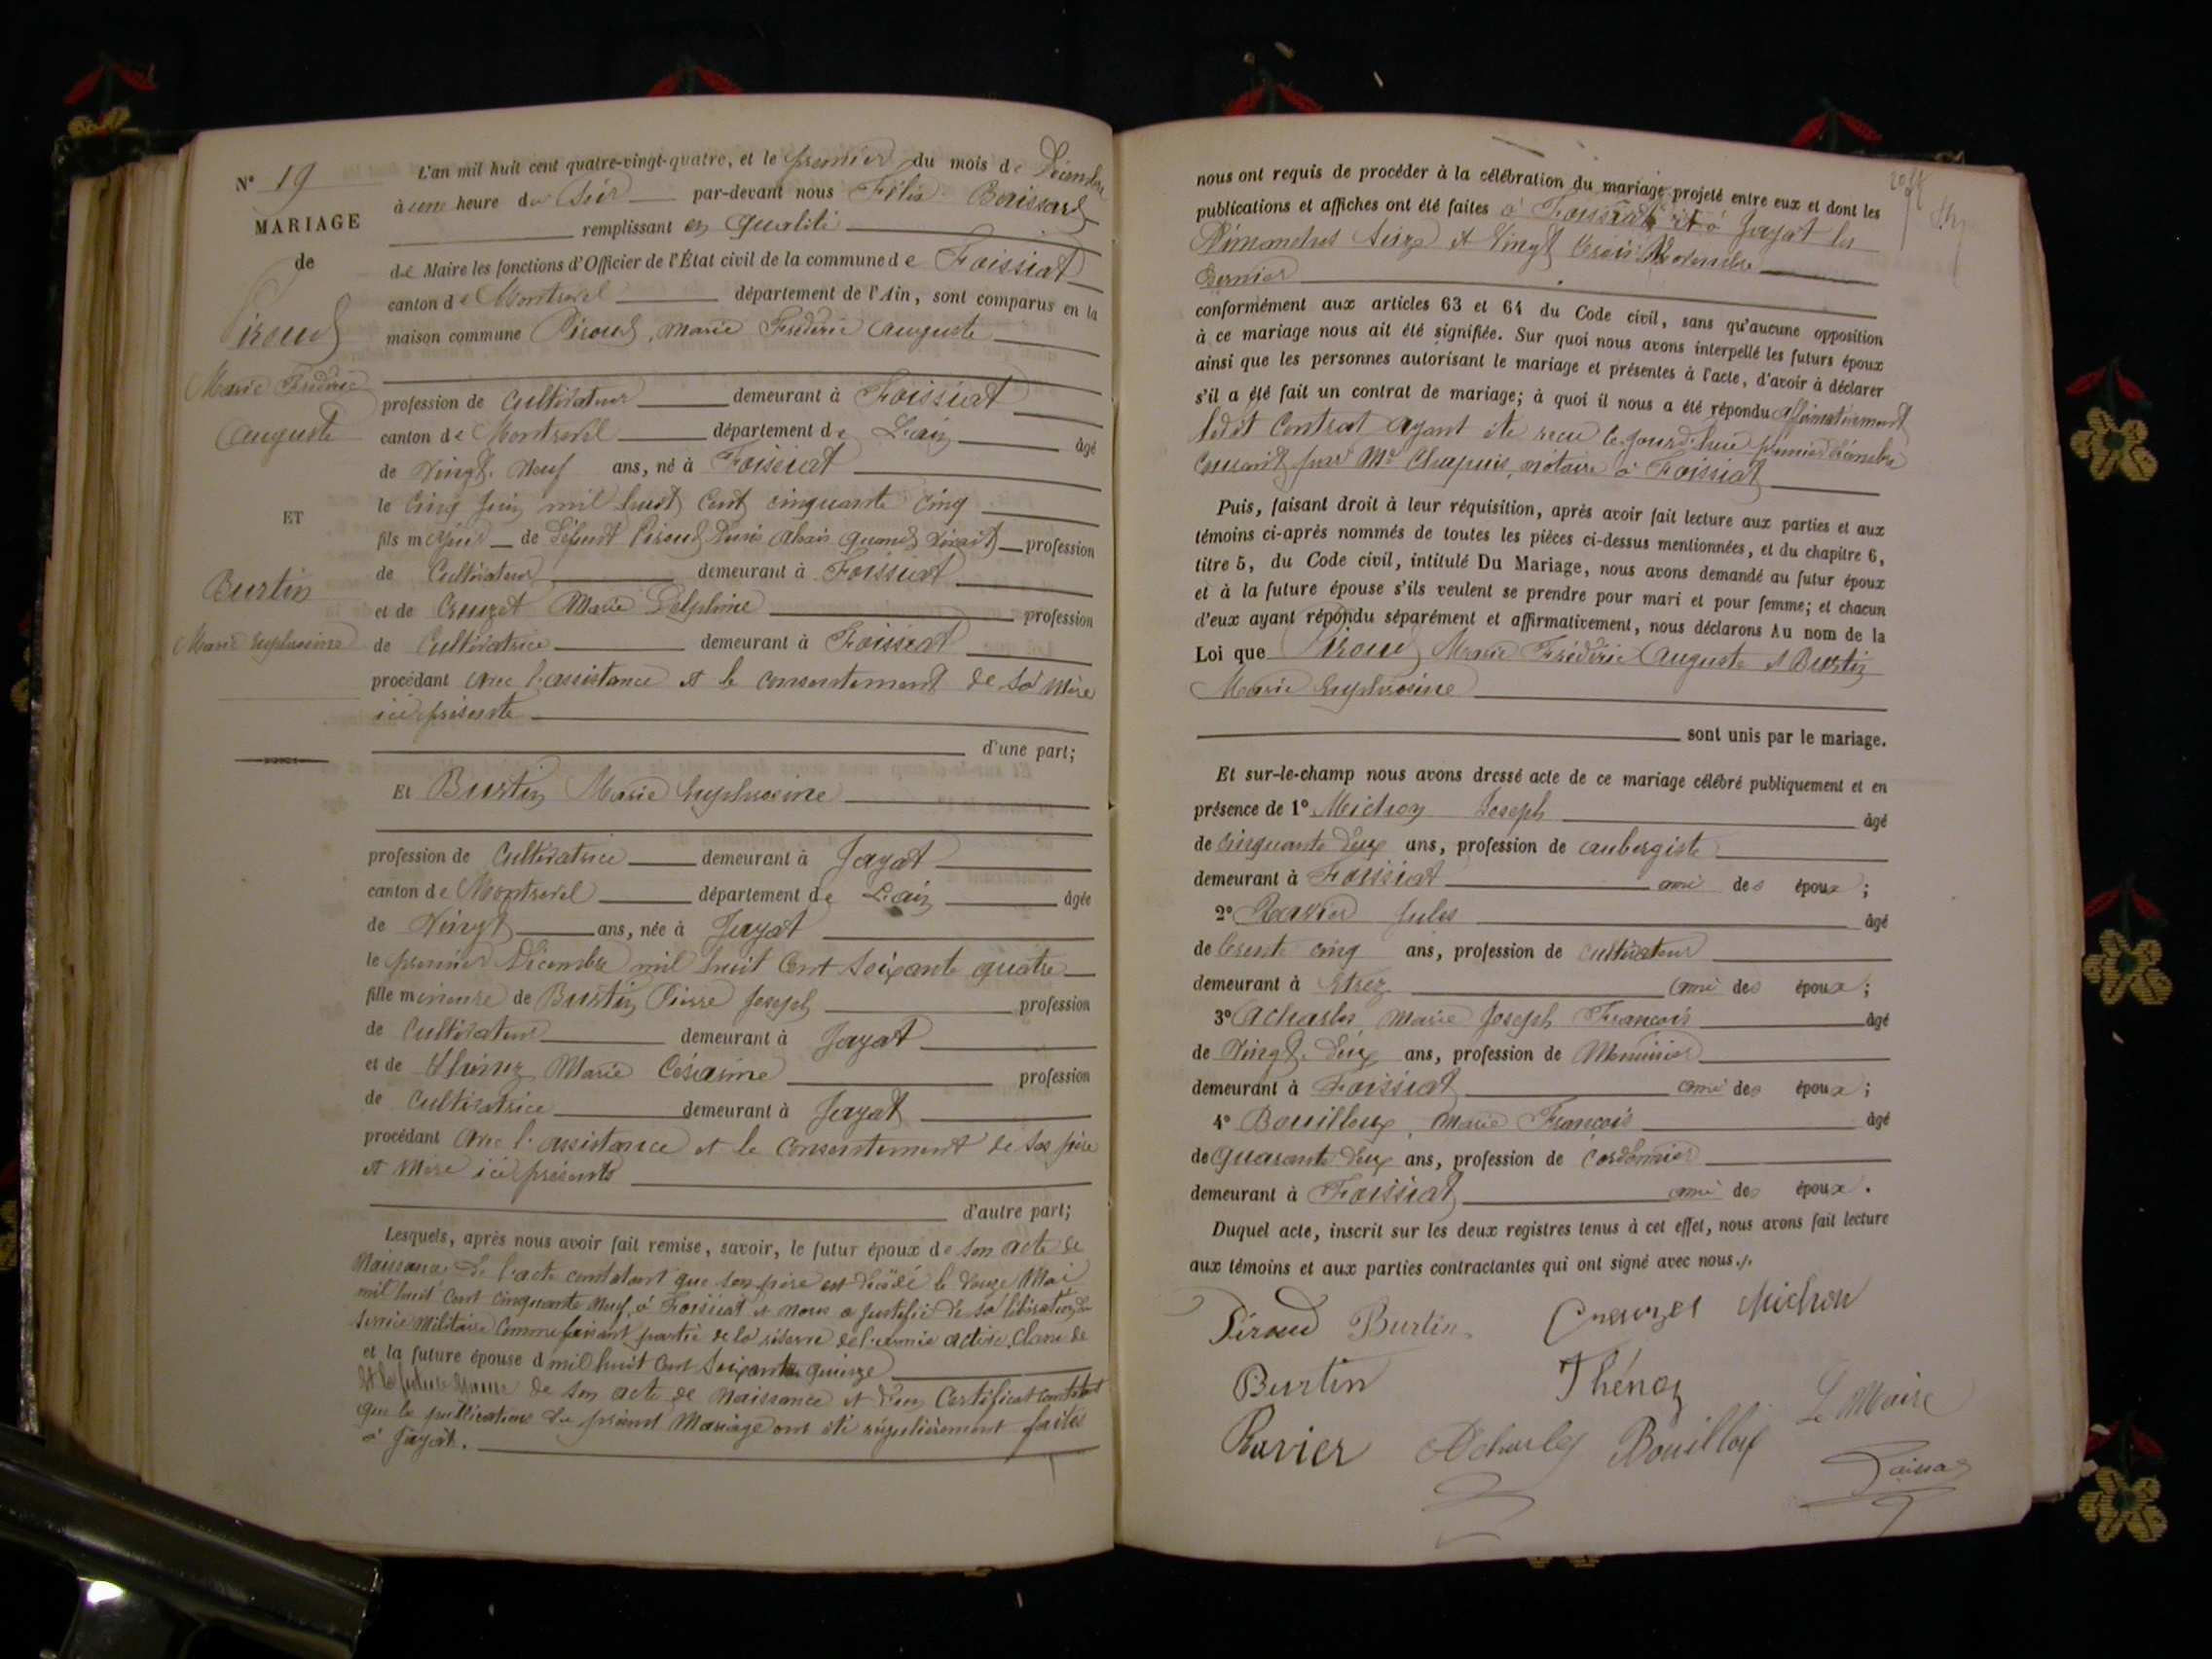 N° 19
MARIAGE
de
Piroud
Marie Frédéric
Auguste
ET
Burtin
Marie Euphrosine
L'an mil huit cent quatre-vingt-quatre, et le premier du mois de Décembre
à une heure du Soir par-devant nous Félix Boissard
remplissant en qualité
de Maire les fonctions d'Officier de l'État civil de la commune de Foissiat
canton de Montrevel département de l'Ain, sont comparus en la
maison commune Piroud, Marie Frédéric Auguste
profession de Cultivateur demeurant à Foissiat
canton de Montrevel département de L'ain âgé
de Vingt-Neuf ans, né à Foissiat
le Cinq Juin mil huit Cent cinquante Cinq
fils majeur de Défunt Piroud Denis Alexis quand vivait profession
de Cultivateur demeurant à Foissiat
et de Creuzet Marie Delphine profession
de Cultivatrice demeurant à Foissiat
procédant avec l'assistance et le consentement de sa Mère
ici présente
d'une part;
Et Burtin Marie Euphrosine
profession de Cultivatrice demeurant à Jayat
canton de Montrevel département de L'ain âgée
de Vingt ans, née à Jayat
le premier Décembre mil huit Cent Soixante quatre
fille mineure de Burtin Pierre Joseph profession
de Cultivateur demeurant à Jayat
et de Thénoz Marie Césarine profession
de Cultivatrice demeurant à Jayat
procédant avec l'assistance et le Consentement de Ses père
et Mère ici présents
d'autre part;
Lesquels, après nous avoir fait remise, savoir, le futur époux de son acte de
Naissance de l'acte constatant que son père est décédé le douze Mai
mil huit Cent cinquante Neuf à Foissiat et Nous a justifié de sa libération du
Service Militaire Comme faisant partie de la réserve de l'armée active Classe de
et la future épouse d mil huit Cent Soixante quinze
Et la future épouse de son acte de Naissance et d'un Certificat constatant
que les publications du présent Mariage ont été régulièrement faites
à Jayat.
nous ont requis de procéder à la célébration du mariage projeté entre eux et dont les
publications et affiches ont été faites à Foissiat et à Jayat les
Dimanches Seize et Vingt trois Novembre
Dernier
conformément aux articles 63 et 64 du Code civil, sans qu'aucune opposition
à ce mariage nous ait été signifiée. Sur quoi nous avons interpellé les futurs époux
ainsi que les personnes autorisant le mariage et présentes à l'acte, d'avoir à déclarer
s'il a été fait un contrat de mariage; à quoi il nous a été répondu affirmativement
ledit Contrat ayant été reçu ce jourd'hui premier Décembre
Courant par Me Chapuis, notaire à Foissiat
Puis, faisant droit à leur réquisition, après avoir fait lecture aux parties et aux
témoins ci-après nommés de toutes les pièces ci-dessus mentionnées, et du chapitre 6,
titre 5, du Code civil, intitulé Du Mariage, nous avons demandé au futur époux
et à la future épouse s'ils veulent se prendre pour mari et pour femme; et chacun
d'eux ayant répondu séparément et affirmativement, nous déclarons Au nom de la
Loi que Piroud Marie Frédéric Auguste et Burtin
Marie Euphrosine
sont unis par le mariage.
Et sur-le-champ nous avons dressé acte de ce mariage célébré publiquement et en
présence de 1° Michon Joseph âgé
de Cinquante Deux ans, profession de aubergiste
demeurant à Foissiat ami des époux;
2° Ravier Jules âgé
de trente cinq ans, profession de cultivateur
demeurant à Etrez ami des époux;
3° Acharles Marie Joseph François âgé
de Vingt-Deux ans, profession de Menuisier
demeurant à Foissiat ami des époux;
4° Bouilloux, Marie François âgé
de Quarante Deux ans, profession de Cordonnier
demeurant à Foissiat ami des époux.
Duquel acte, inscrit sur les deux registres tenus à cet effet, nous avons fait lecture
aux témoins et aux parties contractantes qui ont signé avec nous./.
Piroud Burtin Creuzet Michon
Burtin Thénoz Le Maire
Ravier Acharles Bouilloux Boissard